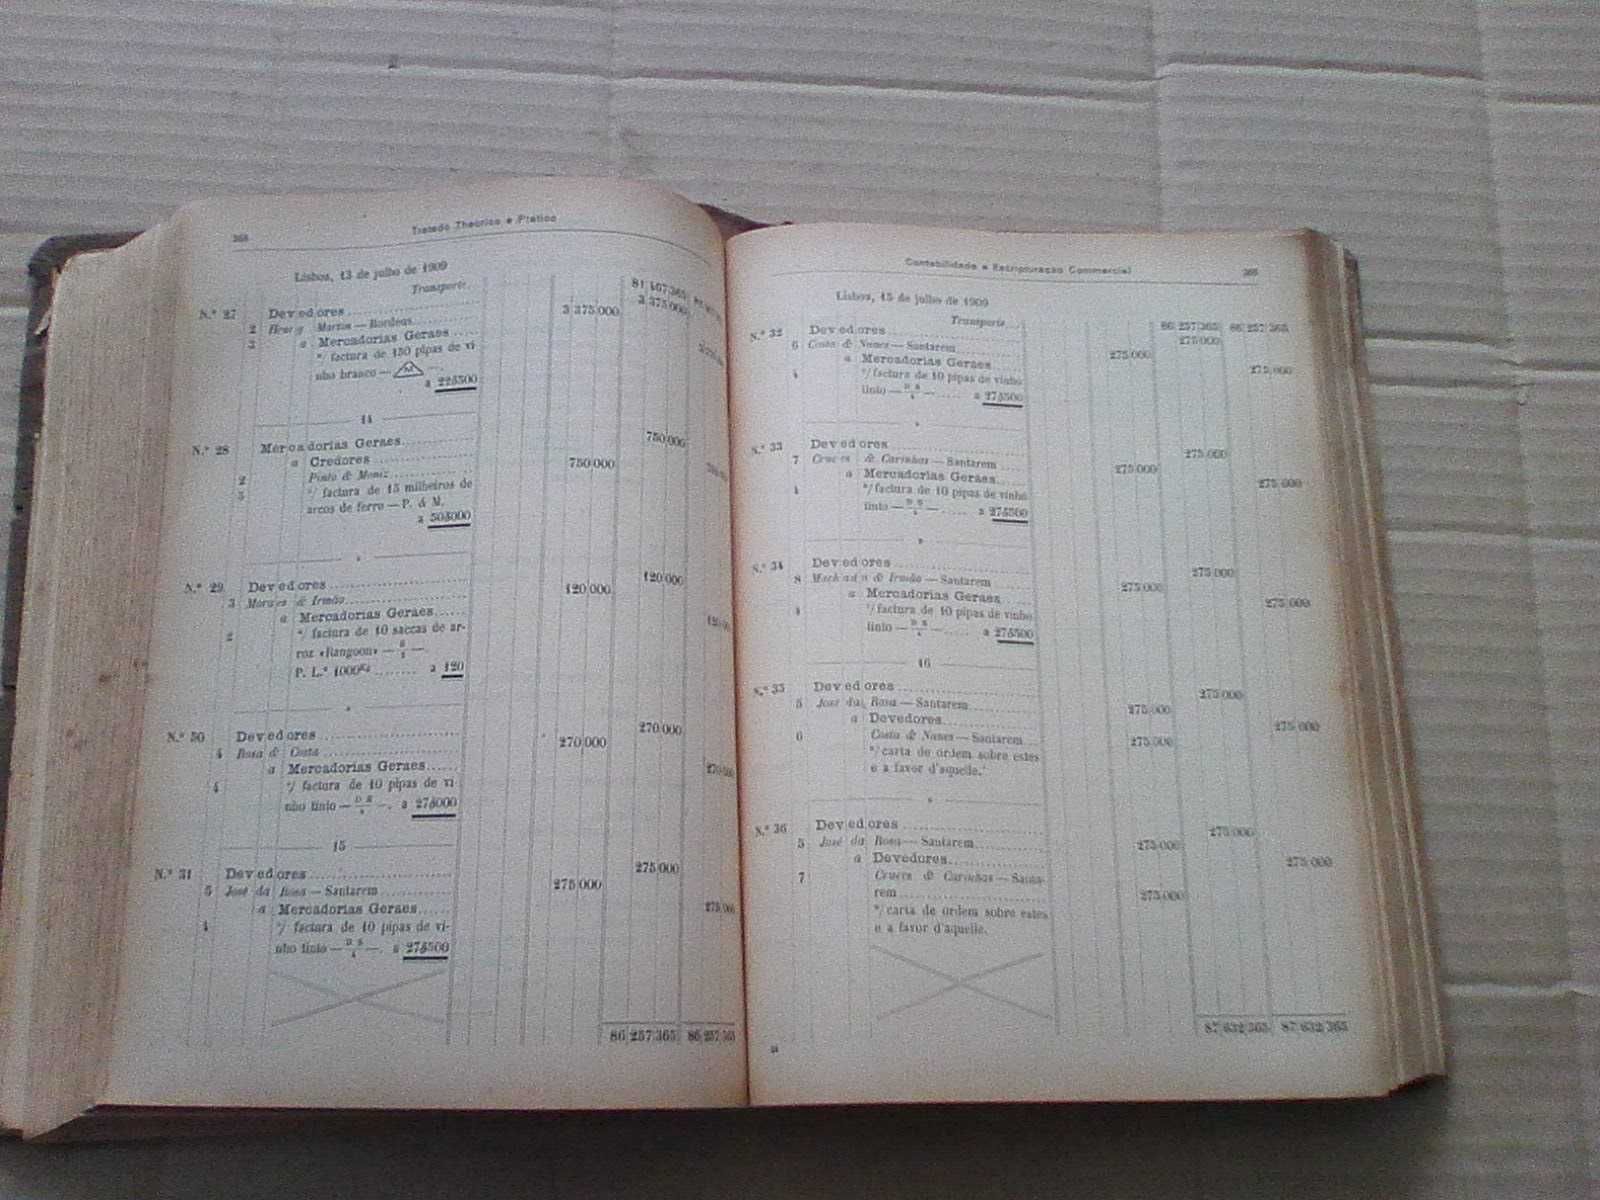 Tratado Theorico e Pratico
Lisboa, 13 de julho de 1909
Transporte 81 467 365
N.º 27 Devedores 3 375 000 3 375 000
2 Martin — Bordeus
3 a Mercadorias Geraes
s/ factura de 150 pipas de vi-
nho branco — M —.
a 22$500
14
N.º 28 Mercadorias Geraes 750 000
a Credores 750 000
2 Pinto & Moniz
3 s/ factura de 15 milheiros de
arcos de ferro — P. & M.
a 50$000
N.º 29 Devedores 120 000 120 000
3 Moraes & Irmão
a Mercadorias Geraes
2 s/ factura de 10 saccas de ar-
roz «Rangoon» —
P. L.º 1000Kg a 120
N.º 30 Devedores 270 000 270 000
4 Rosa & Costa
a Mercadorias Geraes 270 000
4 s/ factura de 10 pipas de vi-
nho tinto — —. a 27$000
15
N.º 31 Devedores 275 000 275 000
5 José da Rosa — Santarem
a Mercadorias Geraes 275 000
4 s/ factura de 10 pipas de vi-
nho tinto — —. a 27$500
86 257 365 86 257 365
Contabilidade e Escripturação Commercial
Lisboa, 15 de julho de 1909
Transporte 86 257 365 86 257 365
N.º 32 Devedores 275 000
6 Costa & Nunes — Santarem 275 000
a Mercadorias Geraes 275 000
4 s/ factura de 10 pipas de vinho
tinto — — a 27$500
N.º 33 Devedores 275 000
7 Cruces & Carinhas — Santarem 275 000
a Mercadorias Geraes 275 000
4 s/ factura de 10 pipas de vinho
tinto — — a 27$500
N.º 34 Devedores 275 000
8 Machado & Irmão — Santarem 275 000
a Mercadorias Geraes 275 000
4 s/ factura de 10 pipas de vinho
tinto — — a 27$500
16
N.º 35 Devedores 275 000
5 José da Rosa — Santarem 275 000
a Devedores 275 000
6 Costa & Nunes — Santarem 275 000
s/ carta de ordem sobre estes
e a favor d'aquelle.
N.º 36 Devedores 275 000
5 José da Rosa — Santarem 275 000
a Devedores 275 000
7 Cruces & Carinhas — Santa-
rem 275 000
s/ carta de ordem sobre estes
e a favor d'aquelle.
87 632 365 87 632 365
24